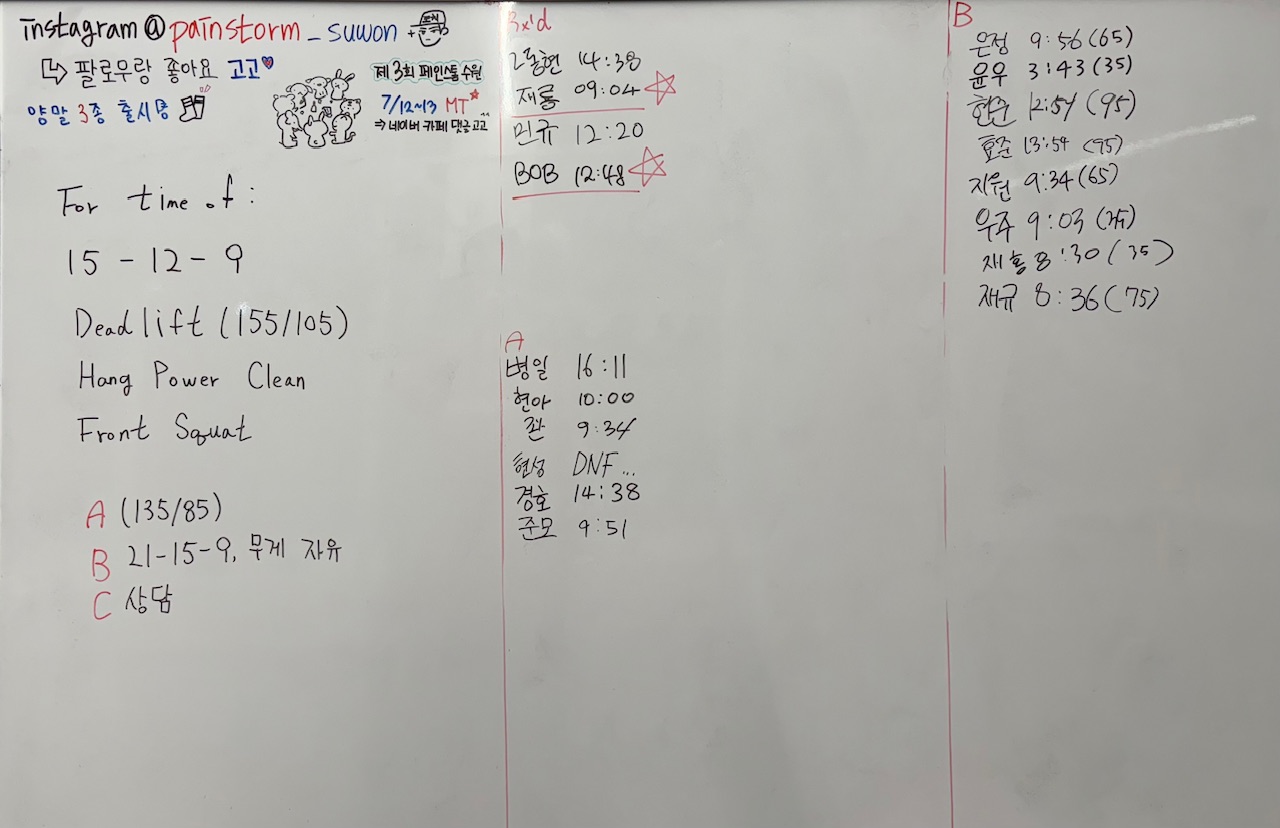 instagram@painstorm_suwon
팔로우랑 좋아요 고고
양말 3종 출시중
제 3회 페인스톰 수원
7/12~13 MT
⇒ 네이버 카페 댓글 고고
For time of:
15 - 12 - 9
Deadlift (155/105)
Hang Power Clean
Front Squat
A (135/85)
B 21-15-9, 무게 자유
C 상담
Rx'd
14:38
재룡 09:04
민규 12:20
BOB 12:48
A
병일 16:11
현아 10:00
관 9:34
현성 DNF...
경호 14:38
준모 9:51
B
은정 9:56 (65)
윤우 3:43 (35)
현준 12:54 (95)
효준 13:54 (95)
지원 9:34 (65)
우주 9:03
재홍 8:30 (35)
재규 8:36 (75)